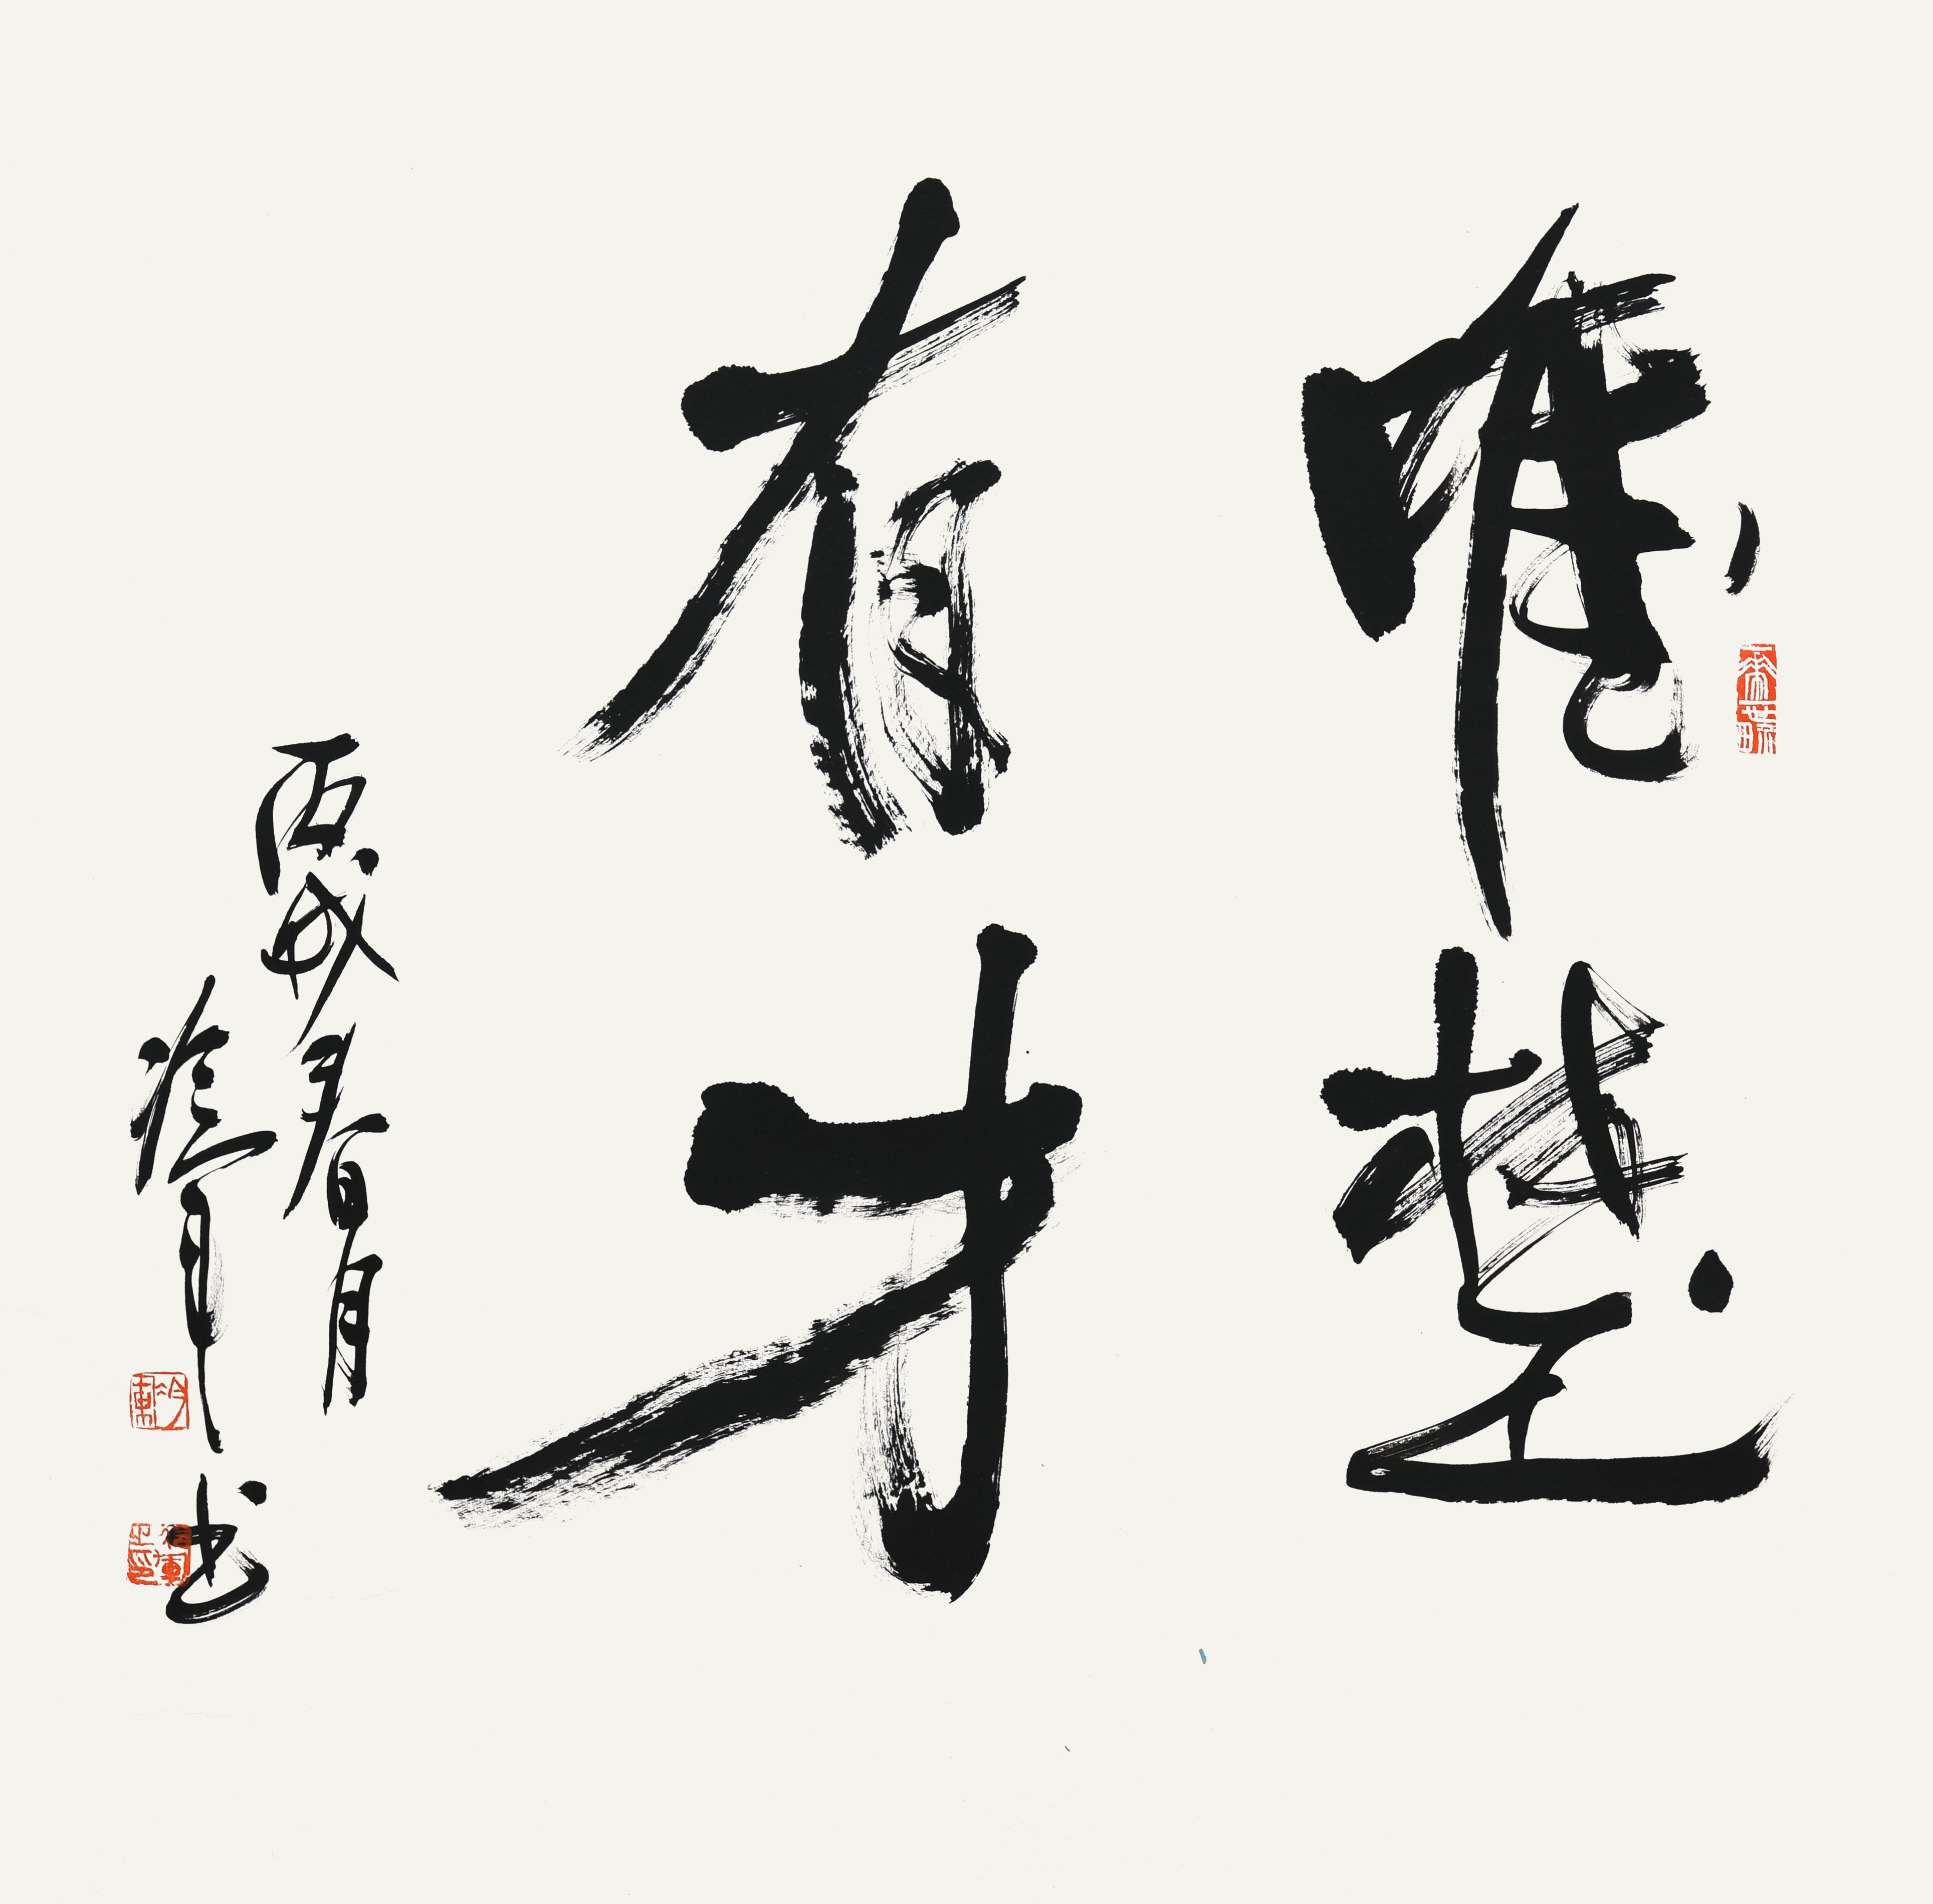 唯楚
有才
丙戌春月
冷軍书